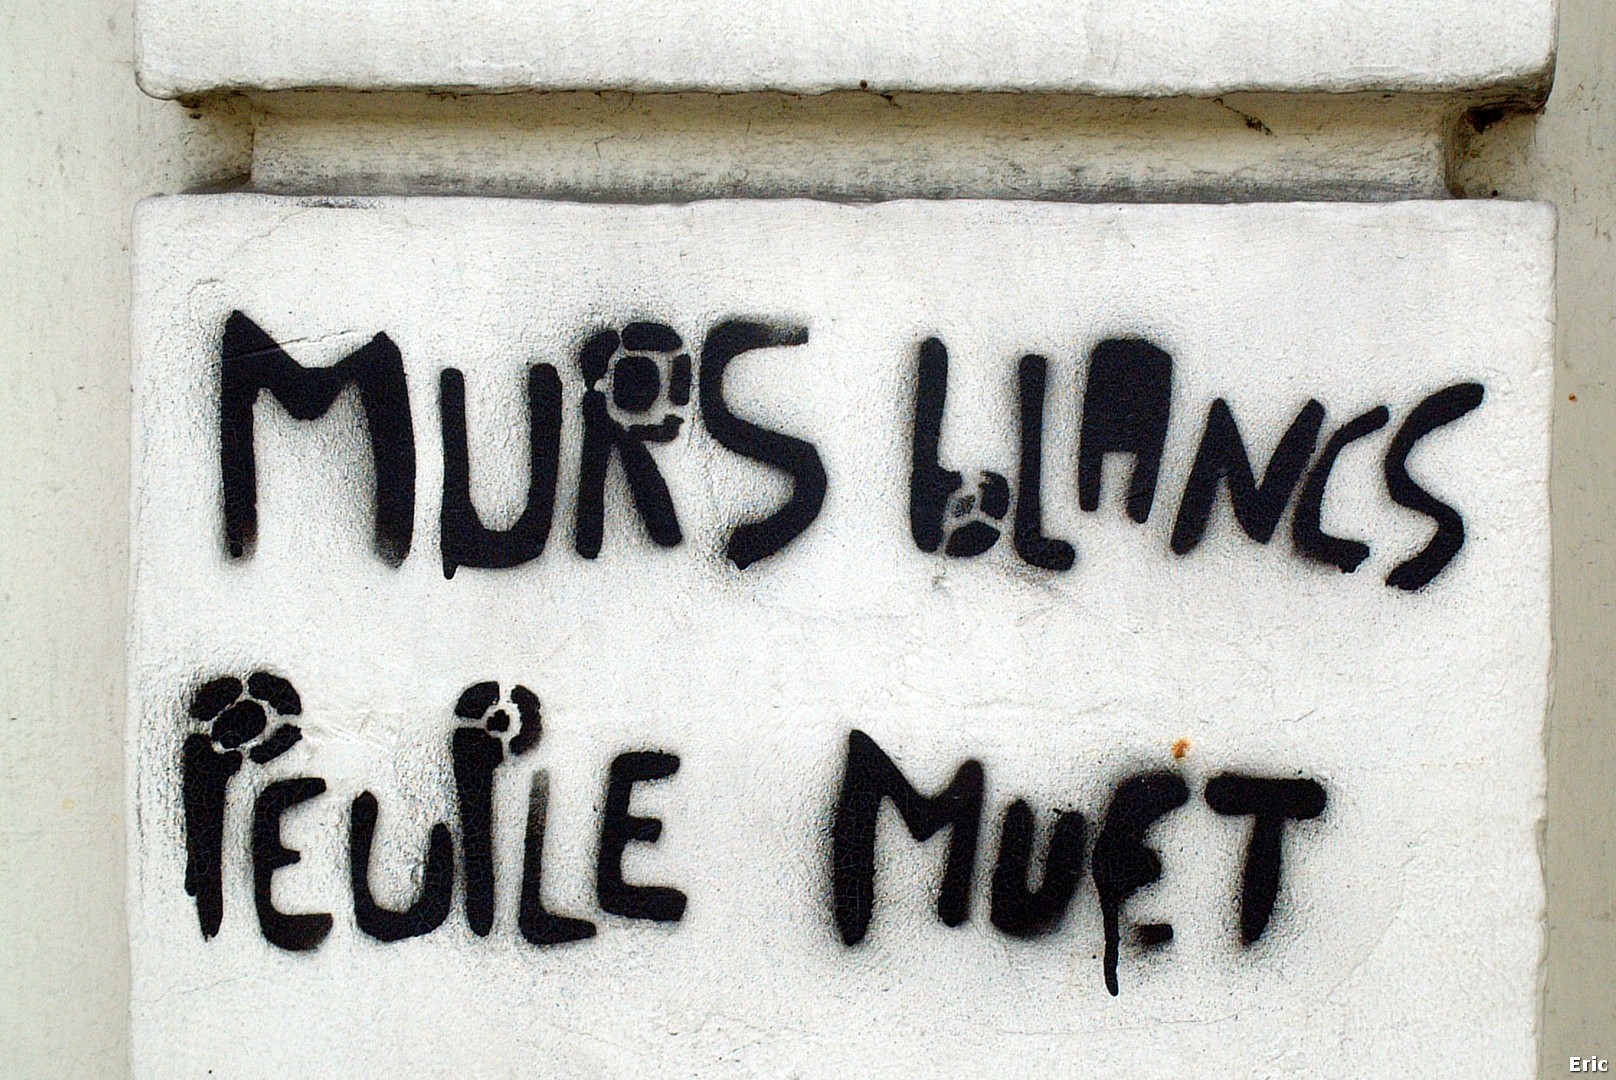 MURS bLANCS
PEUPLE MUET
Eric